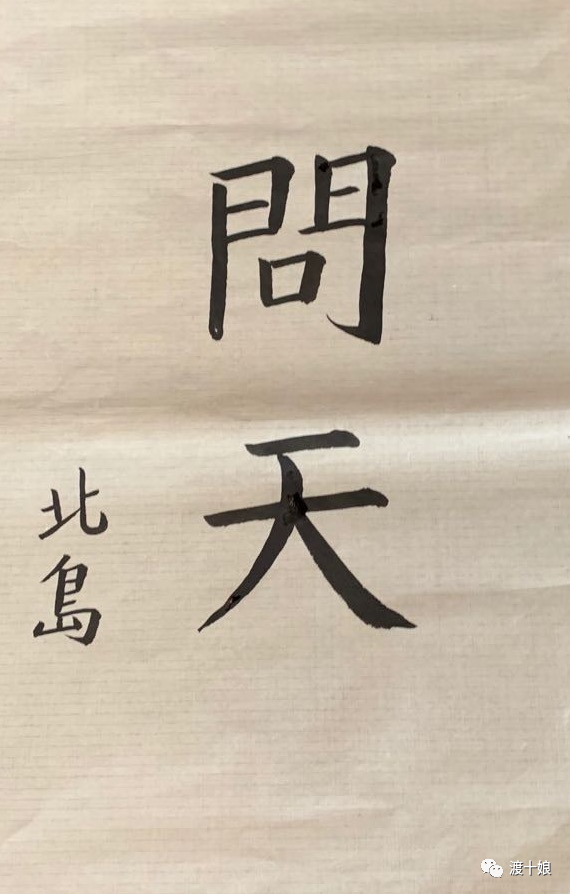 問天
北島
渡十娘